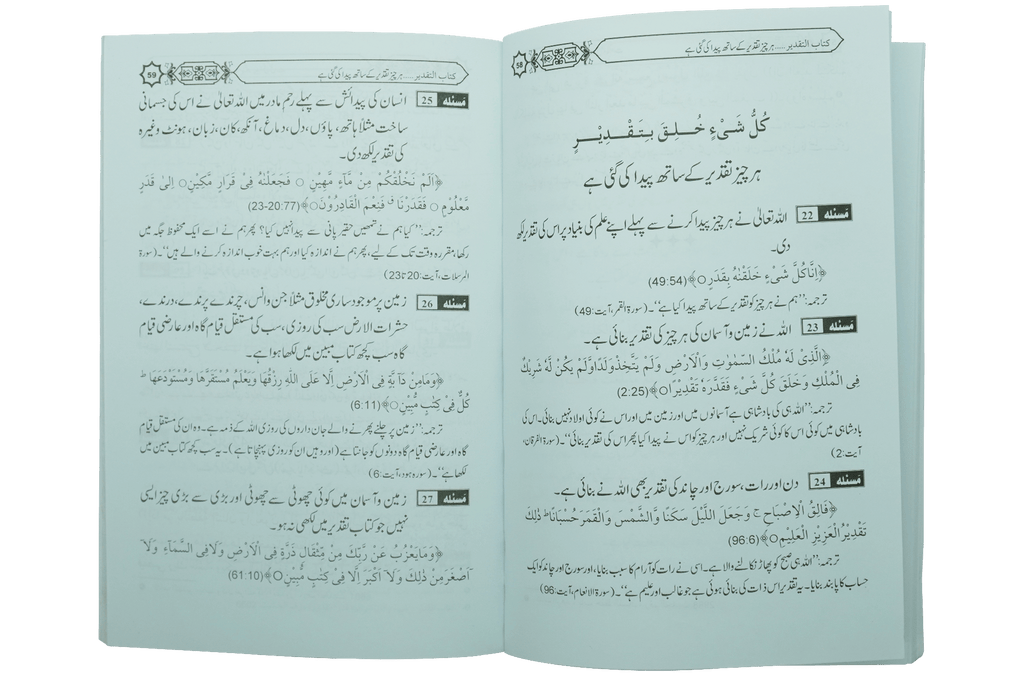 کتاب التقدیر ..... ہر چیز تقدیر کے ساتھ پیدا کی گئی ہے
58
كُلُّ شَیْءٍ خُـلِـقَ بِـتَـقْـدِيْـرٍ
ہر چیز تقدیر کے ساتھ پیدا کی گئی ہے
مسئله 22 اللہ تعالیٰ نے ہر چیز پیدا کرنے سے پہلے اپنے علم کی بنیاد پر اس کی تقدیر لکھ
دی۔
﴿اِنَّا كُلَّ شَیْءٍ خَلَقْنٰهُ بِقَدَرٍ○﴾(49:54)
ترجمہ:’’ہم نے ہر چیز کو تقدیر کے ساتھ پیدا کیا ہے‘‘۔ (سورۃ القمر، آیت:49)
مسئله 23 اللہ نے زمین و آسمان کی ہر چیز کی تقدیر بنائی ہے۔
﴿الَّذِیْ لَهٗ مُلْكُ السَّمٰوٰتِ وَالْاَرْضِ وَلَمْ يَتَّخِذْ وَلَدًا وَّلَمْ يَكُنْ لَّهٗ شَرِيْكٌ
فِی الْمُلْكِ وَخَلَقَ كُلَّ شَیْءٍ فَقَدَّرَهٗ تَقْدِيْرًا○﴾(2:25)
ترجمہ:’’اللہ ہی کی بادشاہی ہے آسمانوں میں اور زمین میں اور اس نے کوئی اولاد نہیں بنائی۔ اس کی
بادشاہی میں کوئی اس کا کوئی شریک نہیں اور ہر چیز کو اس نے پیدا کیا پھر اس کی تقدیر بنائی‘‘۔ (سورۃ الفرقان،
آیت:2)
مسئله 24 دن اور رات، سورج اور چاند کی تقدیر بھی اللہ نے بنائی ہے۔
﴿فَالِقُ الْاِصْبَاحِ ج وَجَعَلَ اللَّيْلَ سَكَنًا وَّالشَّمْسَ وَالْقَمَرَ حُسْبَانًا ط ذٰلِكَ
تَقْدِيْرُ الْعَزِيْزِ الْعَلِيْمِ○﴾(96:6)
ترجمہ:’’اللہ ہی صبح کو پھاڑ نکالنے والا ہے۔ اسی نے رات کو آرام کا سبب بنایا، اور سورج اور چاند کو ایک
حساب کا پابند بنایا۔ یہ تقدیر اس ذات کی بنائی ہوئی ہے جو غالب اور علیم ہے‘‘۔ (سورۃ الانعام، آیت:96)
کتاب التقدیر ..... ہر چیز تقدیر کے ساتھ پیدا کی گئی ہے
59
مسئله 25 انسان کی پیدائش سے پہلے رحم مادر میں اللہ تعالیٰ نے اس کی جسمانی
ساخت مثلاً ہاتھ، پاؤں، دل، دماغ، آنکھ، کان، زبان، ہونٹ وغیرہ
کی تقدیر لکھ دی۔
﴿اَلَمْ نَخْلُقْكُّمْ مِنْ مَّآءٍ مَّهِيْنٍ○ فَجَعَلْنٰهُ فِیْ قَرَارٍ مَّكِيْنٍ○ اِلٰی قَدَرٍ
مَّعْلُوْمٍ○ فَقَدَرْنَا ق فَنِعْمَ الْقَادِرُوْنَ○﴾(23-20:77)
ترجمہ:’’کیا ہم نے تمھیں حقیر پانی سے پیدا نہیں کیا؟ پھر ہم نے اسے ایک محفوظ جگہ میں
رکھا، مقررہ وقت تک کے لیے، پھر ہم نے اندازہ کیا اور ہم بہت خوب اندازہ کرنے والے ہیں‘‘۔ (سورۃ
المرسلات، آیت:20تا23)
مسئله 26 زمین پر موجود ساری مخلوق مثلاً جن وانس، چرند ے پرندے، درندے،
حشرات الارض سب کی روزی، سب کی مستقل قیام گاہ اور عارضی قیام
گاہ سب کچھ کتاب مبین میں لکھا ہوا ہے۔
﴿وَمَا مِنْ دَآبَّةٍ فِی الْاَرْضِ اِلَّا عَلَی اللّٰهِ رِزْقُهَا وَيَعْلَمُ مُسْتَقَرَّهَا وَمُسْتَوْدَعَهَا ط
كُلٌّ فِیْ كِتٰبٍ مُّبِيْنٍ○﴾(6:11)
ترجمہ:’’زمین پر چلنے پھرنے والے جان داروں کی روزی اللہ کے ذمہ ہے۔ وہ ان کی مستقل قیام
گاہ اور عارضی قیام گاہ دونوں کو جانتا ہے (اور وہیں ان کو روزی پہنچاتا ہے)۔ یہ سب کچھ کتاب مبین میں
لکھا ہے‘‘۔ (سورۃ ہود، آیت:6)
مسئله 27 زمین و آسمان میں کوئی چھوٹی سے چھوٹی اور بڑی سے بڑی چیز ایسی
نہیں جو کتاب تقدیر میں لکھی نہ ہو۔
﴿وَمَا يَعْزُبُ عَنْ رَّبِّكَ مِنْ مِّثْقَالِ ذَرَّةٍ فِی الْاَرْضِ وَلَا فِی السَّمَآءِ وَلَآ
اَصْغَرَ مِنْ ذٰلِكَ وَلَآ اَكْبَرَ اِلَّا فِیْ كِتٰبٍ مُّبِيْنٍ○﴾(61:10)